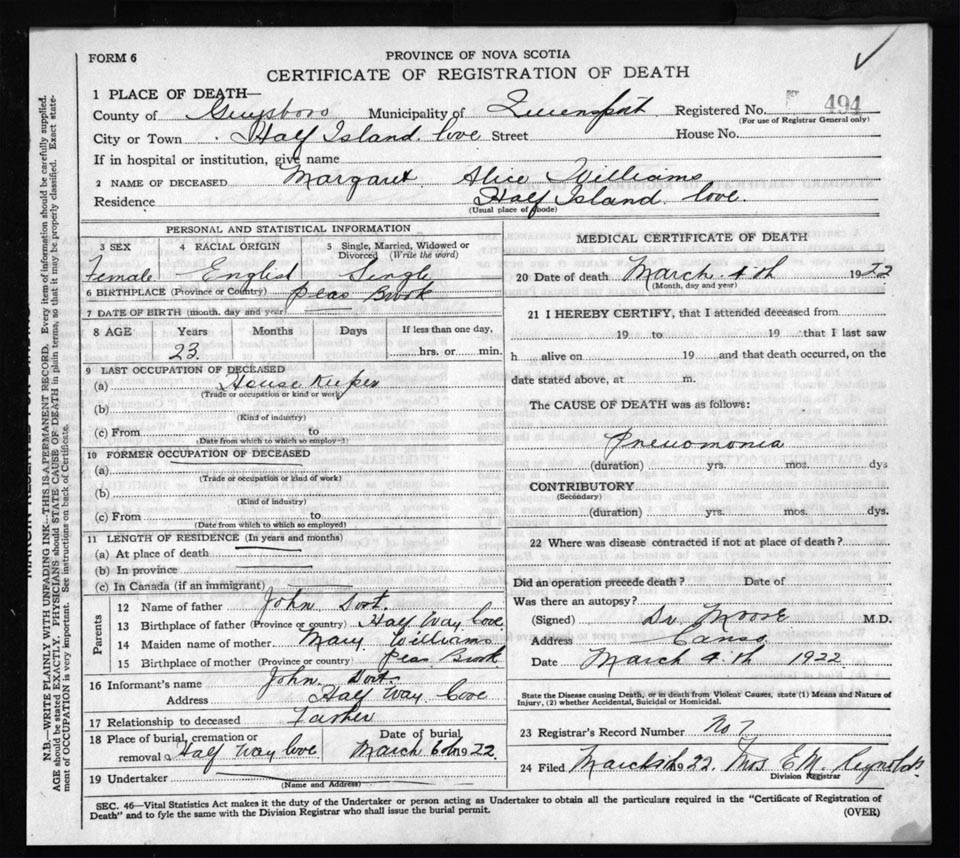 FORM 6
PROVINCE OF NOVA SCOTIA
CERTIFICATE OF REGISTRATION OF DEATH
1 PLACE OF DEATH—
County of Guysboro Municipality of Queensport Registered No. 494
(For use of Registrar General only)
City or Town Half Island Cove Street House No.
If in hospital or institution, give name
2 NAME OF DECEASED Margaret Alice Williams
Residence Half Island Cove.
(Usual place of abode)
PERSONAL AND STATISTICAL INFORMATION
3 SEX 4 RACIAL ORIGIN 5 Single, Married, Widowed or Divorced (Write the word)
Female English Single
6 BIRTHPLACE (Province or Country) Peas Brook
7 DATE OF BIRTH (month, day and year)
8 AGE Years Months Days If less than one day,
23 hrs. or min.
9 LAST OCCUPATION OF DECEASED
(a) House Keeper
(Trade or occupation or kind of work)
(b)
(Kind of industry)
(c) From to
(Date from which to which so employed)
10 FORMER OCCUPATION OF DECEASED
(a)
(Trade or occupation or kind of work)
(b)
(Kind of industry)
(c) From to
(Date from which to which so employed)
11 LENGTH OF RESIDENCE (In years and months)
(a) At place of death
(b) In province
(c) In Canada (if an immigrant)
Parents
12 Name of father John Dort.
13 Birthplace of father (Province or country) Half Way Cove
14 Maiden name of mother Mary Williams
15 Birthplace of mother (Province or country) Peas Brook
16 Informant's name John Dort.
Address Half Way Cove
17 Relationship to deceased Father
18 Place of burial, cremation or removal Half Way Cove Date of burial March 6th 1922
19 Undertaker
(Name and Address)
MEDICAL CERTIFICATE OF DEATH
20 Date of death March 4th 1922
(Month, day and year)
21 I HEREBY CERTIFY, that I attended deceased from
19 to 19 that I last saw
h alive on 19 and that death occurred, on the
date stated above, at m.
The CAUSE OF DEATH was as follows:
Pneuomonia
(duration) yrs. mos. dys
CONTRIBUTORY
(Secondary)
(duration) yrs. mos. dys.
22 Where was disease contracted if not at place of death?
Did an operation precede death? Date of
Was there an autopsy?
(Signed) Dr Moore M.D.
Address Canso
Date March 4th 1922
State the Disease causing Death, or in death from Violent Causes, state (1) Means and Nature of
Injury, (2) whether Accidental, Suicidal or Homicidal.
23 Registrar's Record Number No 7
24 Filed March 1922 Mrs E. M. Reynolds
Division Registrar
SEC. 46—Vital Statistics Act makes it the duty of the Undertaker or person acting as Undertaker to obtain all the particulars required in the "Certificate of Registration of
Death" and to fyle the same with the Division Registrar who shall issue the burial permit.
(OVER)
N.B.—WRITE PLAINLY WITH UNFADING INK—THIS IS A PERMANENT RECORD. Every item of information should be carefully supplied.
AGE should be stated EXACTLY. PHYSICIANS should STATE CAUSE OF DEATH in plain terms, so that it may be properly classified. Exact statement of OCCUPATION is very important. See instructions on back of Certificate.